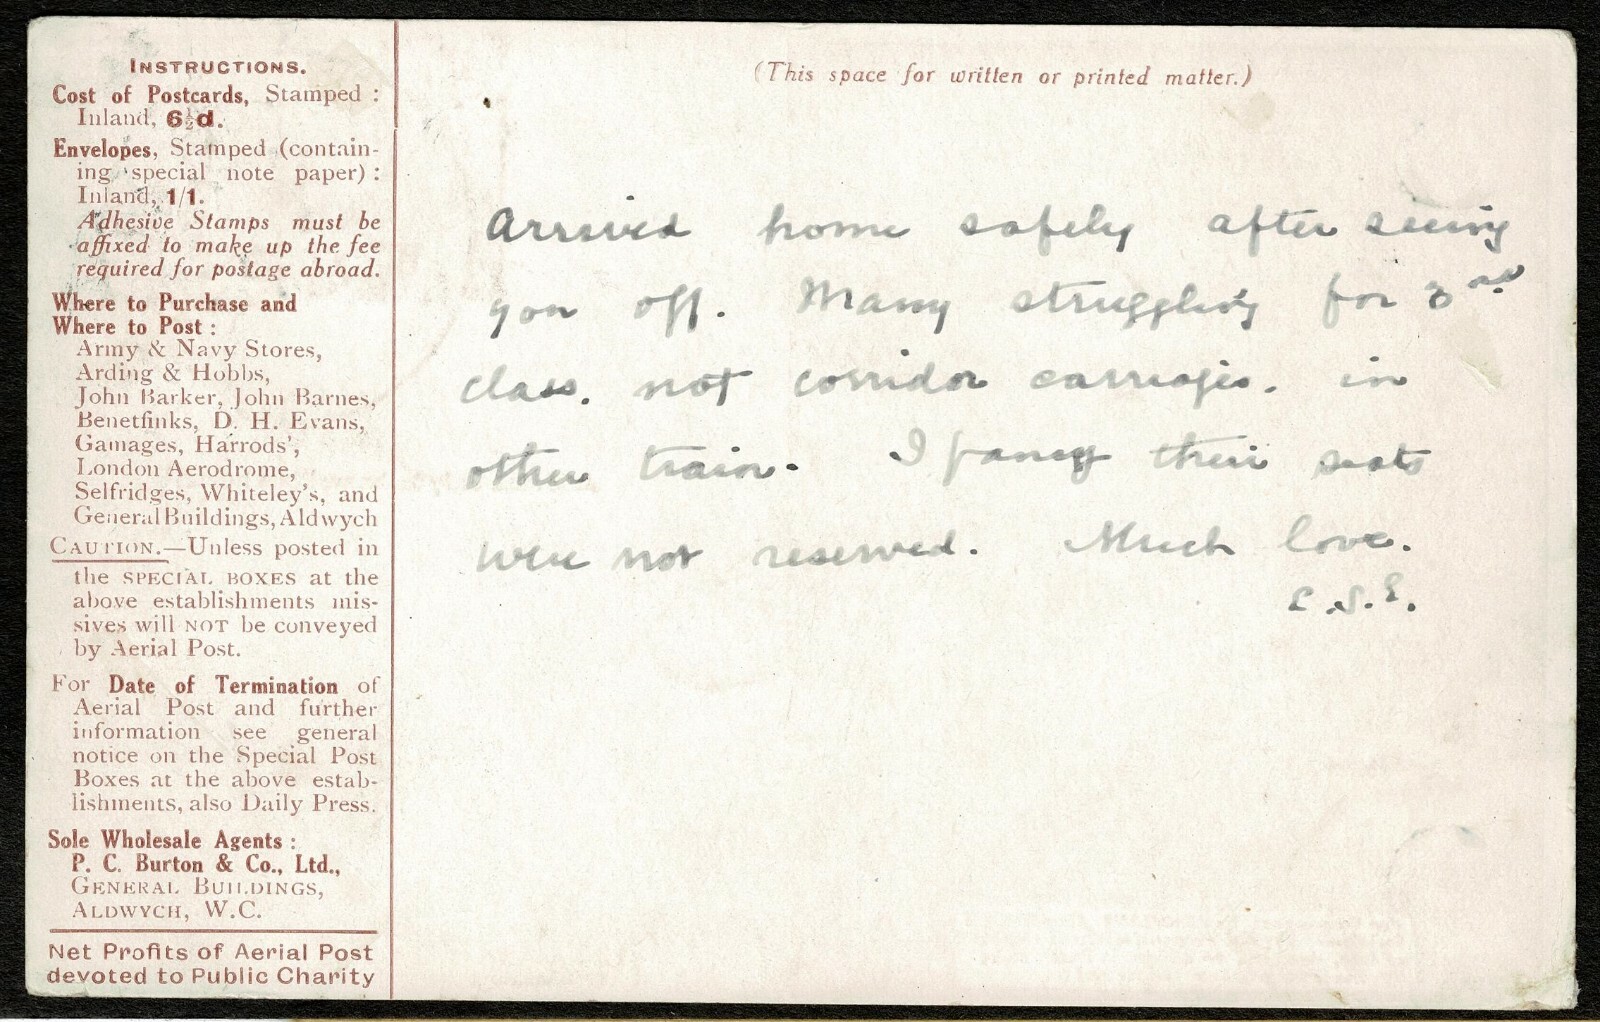 INSTRUCTIONS.
Cost of Postcards, Stamped :
Inland, 6½d.
Envelopes, Stamped (contain-
ing special note paper) :
Inland, 1/1.
Adhesive Stamps must be
affixed to make up the fee
required for postage abroad.
Where to Purchase and
Where to Post :
Army & Navy Stores,
Arding & Hobbs,
John Barker, John Barnes,
Benetfinks, D. H. Evans,
Gamages, Harrods',
London Aerodrome,
Selfridges, Whiteley's, and
General Buildings, Aldwych
CAUTION.—Unless posted in
the SPECIAL BOXES at the
above establishments mis-
sives will NOT be conveyed
by Aerial Post.
For Date of Termination of
Aerial Post and further
information see general
notice on the Special Post
Boxes at the above estab-
lishments, also Daily Press.
Sole Wholesale Agents :
P. C. Burton & Co., Ltd.,
GENERAL BUILDINGS,
ALDWYCH, W.C.
Net Profits of Aerial Post
devoted to Public Charity
(This space for written or printed matter.)
Arrived home safely after seeing
you off. Many struggling for 3rd
class. not corridor carriages. in
other train. I fancy their seats
were not reserved. Much love.
E.S.E.